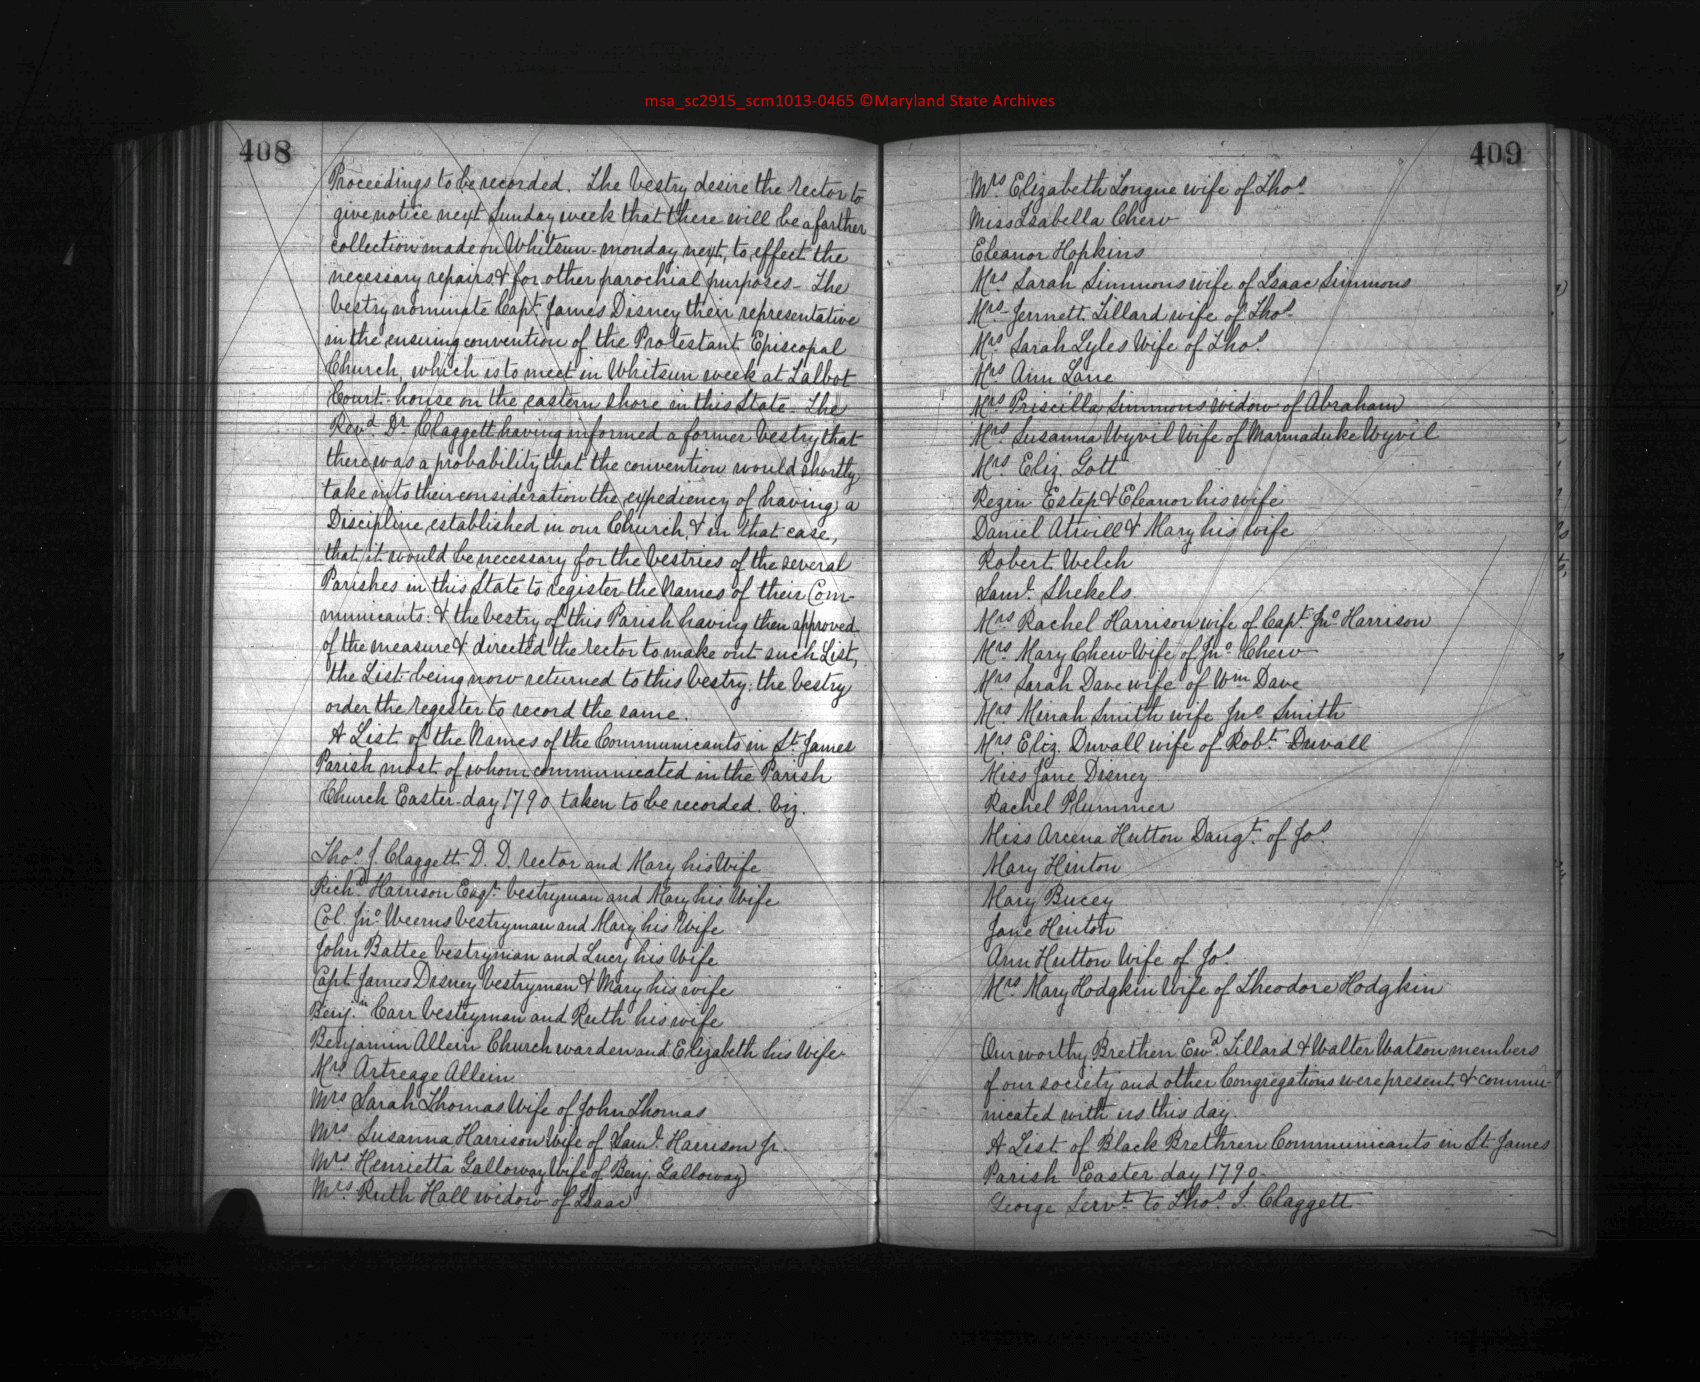 msa_sc2915_scm1013-0465 ©Maryland State Archives
408
Proceedings to be recorded. The Vestry desire the Rector to
give notice next Sunday week that there will be a farther
collection made on Whitsun-monday next, to effect the
necessary repairs & for other parochial purposes - The
Vestry nominate Capt. James Disney their representative
in the ensuing convention of the Protestant Episcopal
Church, which is to meet in Whitsun week at Talbot
Court-house on the eastern shore in this State - The
Revd. Dr. Claggett having informed a former Vestry that
there was a probability that the convention would shortly
take into their consideration the expediency of having a
Discipline established in our Church, & in that case,
that it would be necessary for the Vestries of the several
Parishes in this State to register the Names of their Com-
municants: & the Vestry of this Parish having then approved
of the measure & directed the rector to make out such List,
the List being now returned to this Vestry; the Vestry
order the Regester to record the same.
A List of the Names of the Communicants in St. James
Parish most of whom communicated in the Parish
Church Easter-day 1790 taken to be recorded. Viz.
Thos. J. Claggett D. D. rector and Mary his Wife
Richd. Harrison Esqr. Vestryman and Mary his Wife
Col. Jno. Weems Vestryman and Mary his Wife
John Battee Vestryman and Lucy his Wife
Capt. James Disney Vestryman & Mary his wife
Benj.n Carr Vestryman and Ruth his wife
Benjamin Allein Church warden and Elizabeth his Wife
Mrs. Artreage Allein
Mrs. Sarah Thomas Wife of John Thomas
Mrs. Susanna Harrison Wife of Saml. Harrison Jr.
Mrs. Henrietta Galloway Wife of Benj. Galloway
Mrs. Ruth Hall widow of Isaac
409
Mrs Elizabeth Tongue wife of Thos.
Miss Isabella Chew
Eleanor Hopkins
Mrs. Sarah Simmons wife of Isaac Simmons
Mrs. Jennett Lillard wife of Thos.
Mrs. Sarah Lyles Wife of Thos.
Mrs. Ann Lane
Mrs. Priscilla Simmons widow of Abraham
Mrs. Susanna Wyvil Wife of Marmaduke Wyvil
Mrs. Eliz. Gott
Rezin Estep & Eleanor his wife
Daniel Atwill & Mary his wife
Robert Welch
Saml. Shekels
Mrs. Rachel Harrison wife of Capt. Jno. Harrison
Mrs. Mary Chew Wife of Jno. Chew
Mrs. Sarah Dave wife of Wm Dave
Mrs. Minah Smith wife Jno. Smith
Mrs. Eliz. Duvall wife of Robt. Duvall
Miss Jane Disney
Rachel Plummer
Miss Arcena Hutton Daugt. of Jos.
Mary Hinton
Mary Bucey
Jane Hinton
Ann Hutton Wife of Jos.
Mrs. Mary Hodgkin Wife of Theodore Hodgkin
Our worthy Brethen Ewd. Lillard & Walter Watson members
of our society and other Congregations were present & commu-
nicated with us this day.
A List of Black Brethren Communicants in St. James
Parish Easter day 1790.
George Servt. to Thos. J. Claggett